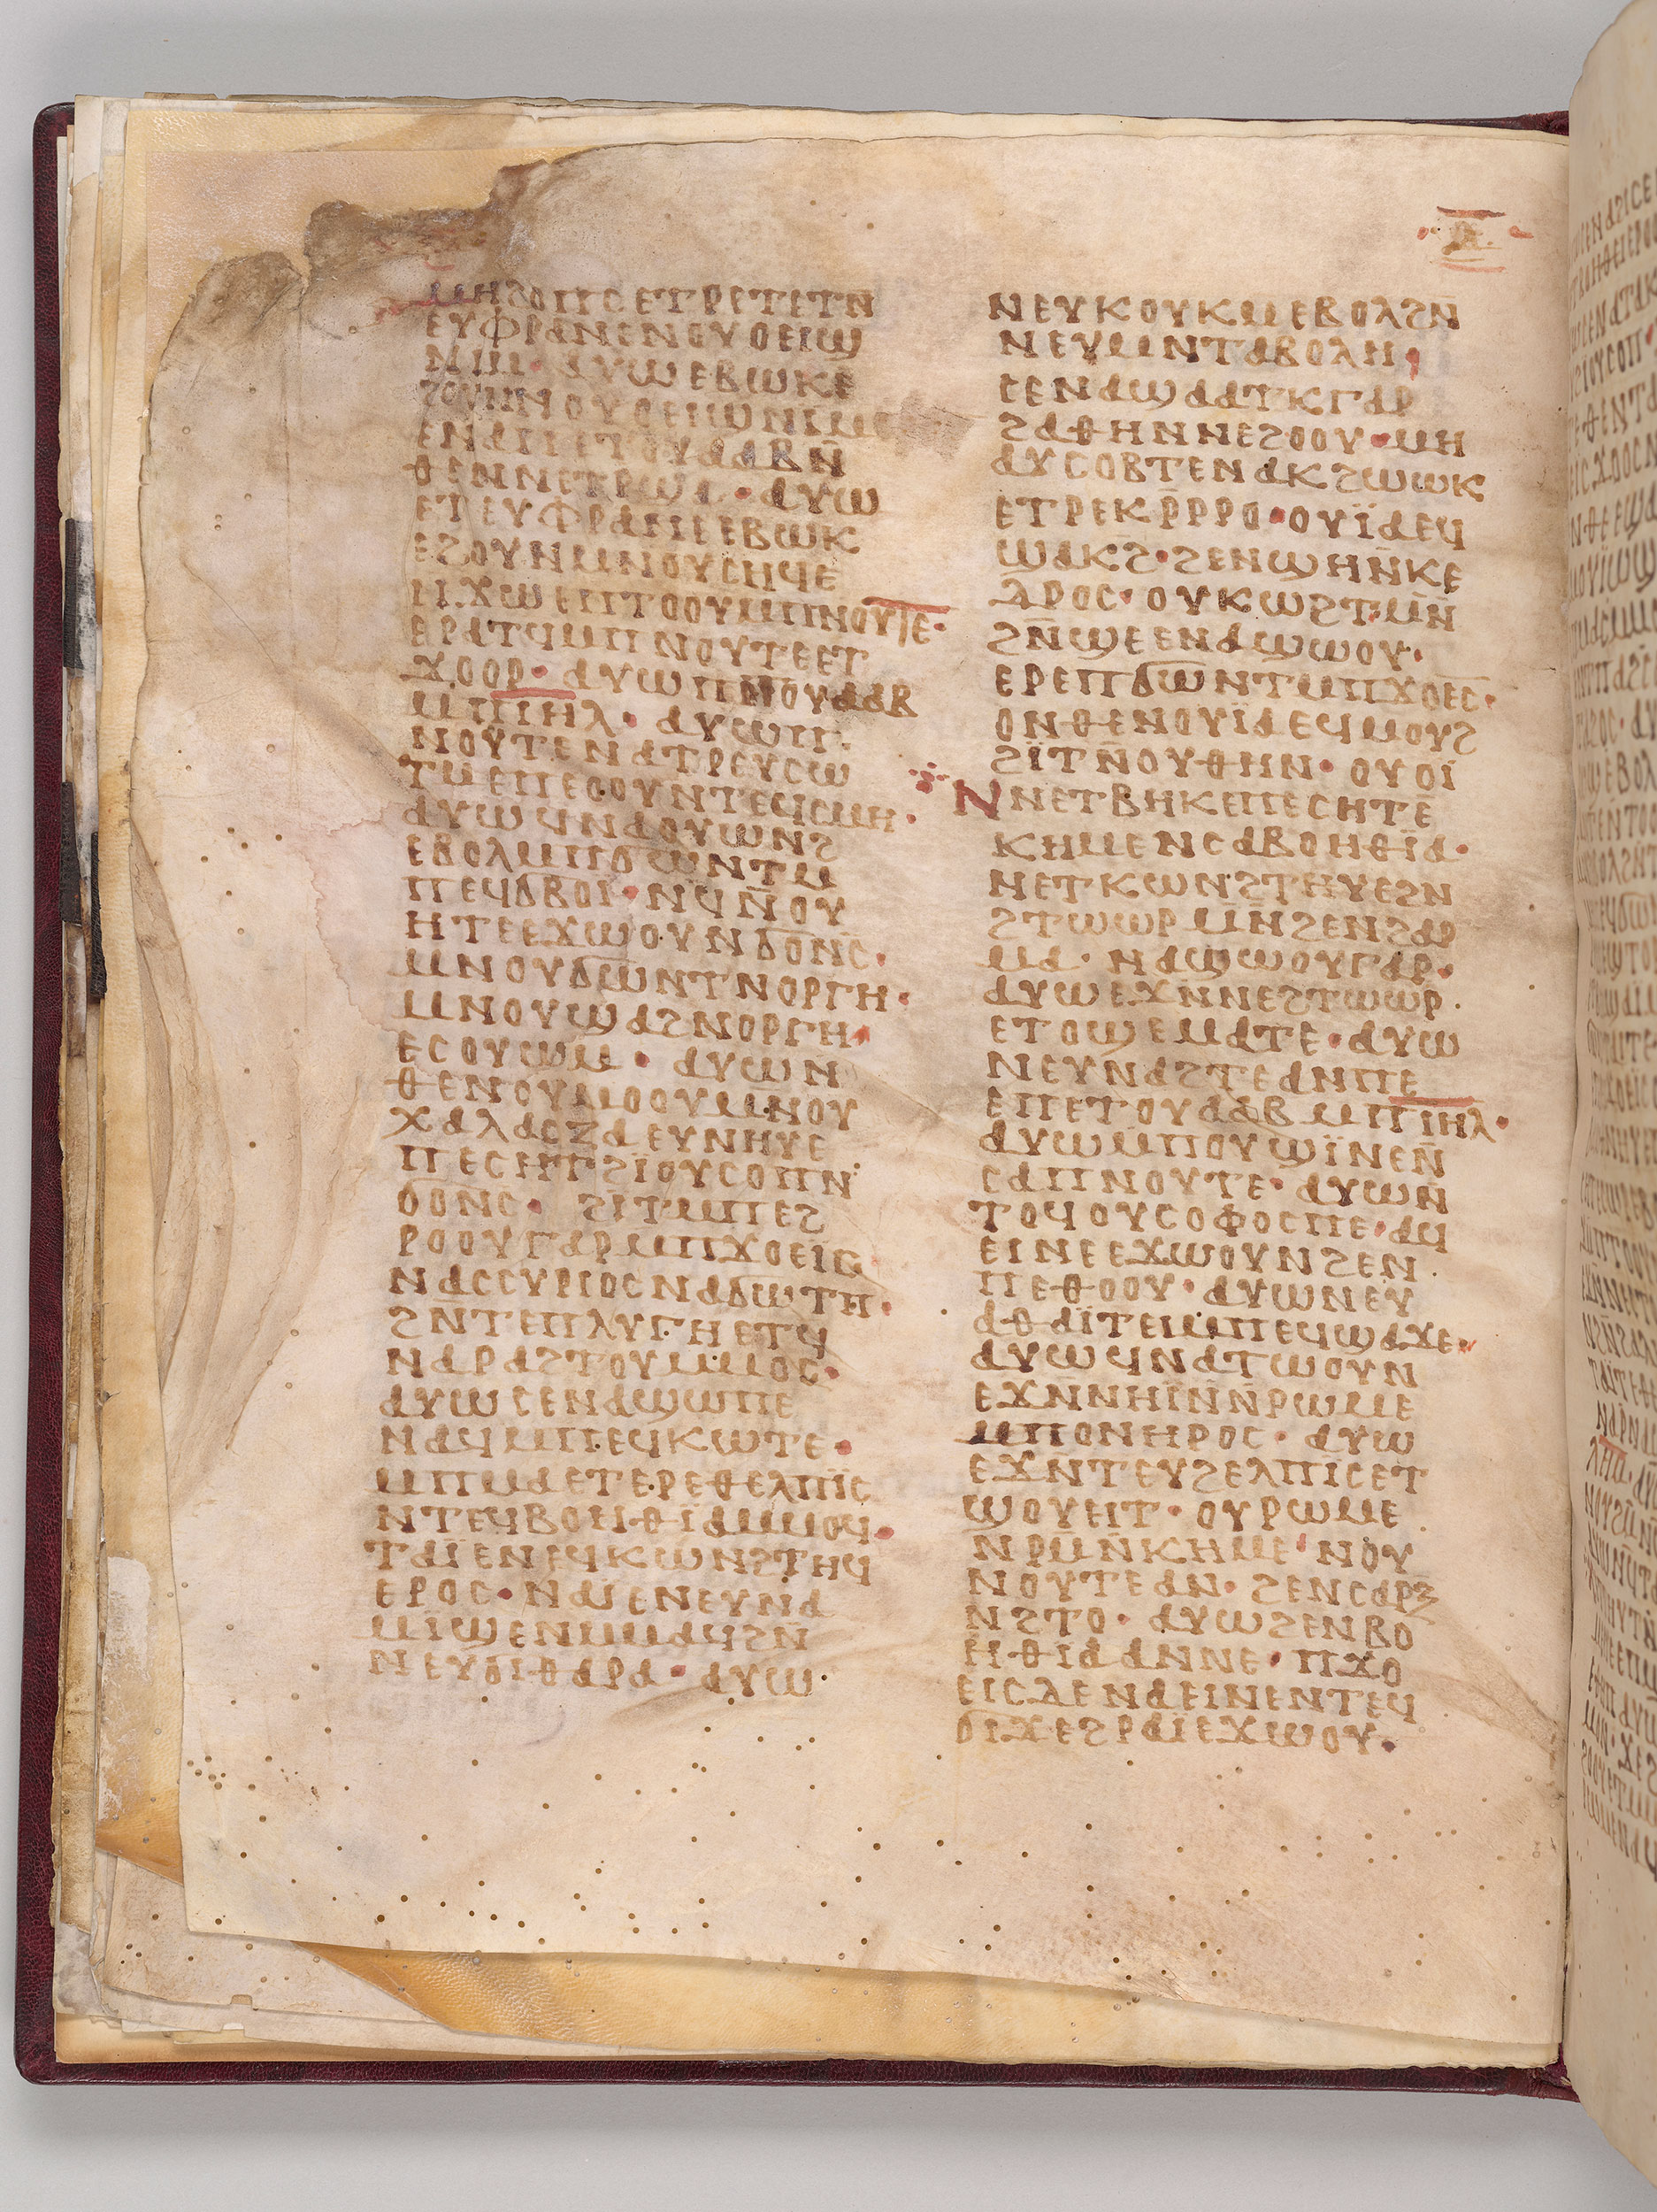 ⲙⲏϩⲟⲡⲥ ⲉⲧⲣⲉⲧⲉⲧⲛ̄
ⲉⲩⲫⲣⲁⲛⲉⲛⲟⲩⲟⲉⲓϣ
ⲛⲓⲙ· ⲁⲩⲱ ⲉⲃⲱⲕⲉ
ϩⲟⲩⲛⲛⲟⲩⲟⲉⲓϣⲛⲓⲙ
ⲉⲛⲁⲡⲉⲧⲟⲩⲁⲁⲃⲛ̄
ⲑⲉⲛⲛⲉⲧⲣϣⲁ· ⲁⲩⲱ
ⲉⲧⲉⲩⲫⲣⲁⲛⲉⲉⲃⲱⲕ
ⲉϩⲟⲩⲛⲙⲛⲟⲩⲥⲏϥⲉ
ⲉϫⲱⲉⲡⲧⲟⲟⲩⲙⲡⲛⲟⲩⲧⲉ·
ⲉⲣⲁⲧϥⲙⲡⲛⲟⲩⲧⲉⲉⲧ
ϫⲟⲟⲣ· ⲁⲩⲱⲡⲡⲉⲧⲟⲩⲁⲁⲃ
ⲙⲡⲓⲏⲗ· ⲁⲩⲱⲡ
ⲛⲟⲩⲧⲉⲛⲁⲧⲣⲉⲩⲥⲱ
ⲧⲙⲉⲡⲉⲟⲟⲩⲛⲧⲉϥⲥⲙⲏ·
ⲁⲩⲱϥⲛⲁⲟⲩⲱⲛϩ
ⲉⲃⲟⲗⲙⲡϭⲱⲛⲧⲙ
ⲡⲉϥϭⲃⲟⲓ· ⲛϥⲛ̄ⲟⲩ
ⲏⲧⲉⲉϫⲱⲟⲩⲛϭⲟⲛⲥ·
ⲙⲛⲟⲩϭⲱⲛⲧⲛⲟⲣⲅⲏ·
ⲙⲛⲟⲩϣⲁϩⲛⲟⲣⲅⲏ·
ⲉⲥⲟⲩⲱⲙ· ⲁⲩⲱⲛ
ⲑⲉⲛⲟⲩⲙⲟⲟⲩⲙⲛⲟⲩ
ⲭⲁⲗⲁⲥⲍⲁⲉⲩⲛⲏⲩⲉ
ⲡⲉⲥⲏⲧϩⲓⲟⲩⲥⲟⲡⲛ
ϭⲟⲛⲥ· ϩⲓⲧⲙⲡⲉϩ
ⲣⲟⲟⲩⲅⲁⲣⲙⲡϫⲟⲉⲓⲥ
ⲛⲁⲥⲥⲩⲣⲓⲟⲥⲛⲁϭⲱⲧⲡ·
ϩⲛⲧⲉⲡⲗⲩⲅⲏⲉⲧϥ
ⲛⲁⲣⲁϩⲧⲟⲩⲙⲙⲟⲥ·
ⲁⲩⲱⲥⲉⲛⲁϣⲱⲡⲉ
ⲛⲁϥⲙⲡⲉϥⲕⲱⲧⲉ·
ⲙⲡⲙⲁⲉⲧⲉⲣⲉⲑⲉⲗⲡⲓⲥ
ⲛⲧⲉϥⲃⲟⲏⲑⲓⲁⲙⲙⲟϥ·
ⲧⲁⲓⲉⲛⲉϥⲕⲱⲛϩⲧⲏϥ
ⲉⲣⲟⲥ· ⲛⲁⲓⲉⲛⲉⲩⲛⲁ
ⲙⲓϣⲉⲛⲙⲙⲁϥϩⲛ̄
ⲛⲉⲩϭⲓⲑⲁⲣⲁ· ⲁⲩⲱ
ⲛⲉⲩⲕⲟⲩⲕⲙⲉⲃⲟⲗϩⲛ̄
ⲛⲉⲩⲙⲛⲧⲁⲃⲟⲗⲏ·
ⲥⲉⲛⲁϣⲁⲁⲧⲕⲅⲁⲣ
ϩⲁⲑⲏⲛⲛⲉϩⲟⲟⲩ· ⲙⲏ
ⲁⲩⲥⲟⲃⲧⲉⲛⲁⲕϩⲱⲱⲕ
ⲉⲧⲣⲉⲕⲣ̄ⲣⲣⲟ· ⲟⲩⲓ̈ⲁⲉϥ
ϣⲁⲕϩ· ϩⲉⲛϣⲏⲛ̄ⲕⲉ
ⲇⲣⲟⲥ· ⲟⲩⲕⲱϩⲧ ⲙⲛ̄
ϩⲛ̄ϣⲉⲉⲛⲁϣⲱⲟⲩ·
ⲉⲣⲉⲡϭⲱⲛⲧⲙⲡϫⲟⲉⲓⲥ·
ⲟⲛⲑⲉⲛⲟⲩⲓ̈ⲁⲉϥⲙⲟⲩϩ
ϩⲓ̈ⲧⲛ̄ⲟⲩⲑⲏⲛ· ⲟⲩⲟⲓ̈
ⲛⲛⲉⲧⲃⲏⲕⲉⲡⲉⲥⲏⲧⲉ
ⲕⲏⲙⲉⲛⲥⲁⲃⲟⲏⲑⲓ̈ⲁ·
ⲛⲉⲧⲕⲱⲛϩⲧⲏⲩⲉϩⲛ
ϩⲧⲱⲱⲣⲙⲛ̄ϩⲉⲛϩⲁⲣ
ⲙⲁ· ⲛⲁϣⲱⲟⲩⲅⲁⲣ·
ⲁⲩⲱⲉϫⲛⲛⲉϩⲧⲱⲱⲣ·
ⲉⲧⲟϣⲉⲙⲁⲧⲉ· ⲁⲩⲱ
ⲛⲉⲩⲛⲁϩⲧⲉⲁⲛⲡⲉ
ⲉⲡⲉⲧⲟⲩⲁⲁⲃⲙⲡⲓⲏⲗ·
ⲁⲩⲱⲙ̄ⲡⲟⲩϣⲓ̈ⲛⲉⲛ̄
ⲥⲁⲡⲛⲟⲩⲧⲉ· ⲁⲩⲱⲛ̄
ⲧⲟϥⲟⲩⲥⲟⲫⲟⲥⲡⲉ· ⲁϥ
ⲉⲓⲛⲉⲉϫⲱⲟⲩⲛϩⲉⲛ
ⲡⲉⲑⲟⲟⲩ· ⲁⲩⲱⲛⲉⲩ
ⲁⲑⲁⲓ̈ⲧⲉⲓⲙⲡⲉϥϣⲁϫⲉ·
ⲁⲩⲱϥⲛⲁⲧⲱⲟⲩⲛ
ⲉϫⲛ̄ⲛⲏⲓ̈ⲛ̄ⲛ̄ⲣⲱⲙⲉ
ⲙⲡⲟⲛⲏⲣⲟⲥ· ⲁⲩⲱ
ⲉϫⲛⲧⲉⲩϩⲉⲗⲡⲓⲥⲉⲧ
ϣⲟⲩⲉⲓⲧ· ⲟⲩⲣⲱⲙⲉ
ⲛⲣⲙⲛ̄ⲕⲏⲙⲉ ⲛⲟⲩ
ⲛⲟⲩⲧⲉⲁⲛ· ϩⲉⲛⲥⲁⲣⲝ
ⲛϩⲧⲟ· ⲁⲩⲱϩⲉⲛⲃⲟ
ⲏⲑⲓⲁⲁⲛⲛⲉ· ⲡϫⲟ
ⲉⲓⲥⲇⲉⲛⲁⲉⲓⲛⲉⲛⲧⲉϥ
ϭⲓϫⲉϩⲣⲁⲓ̈ⲉϫⲱⲟⲩ·